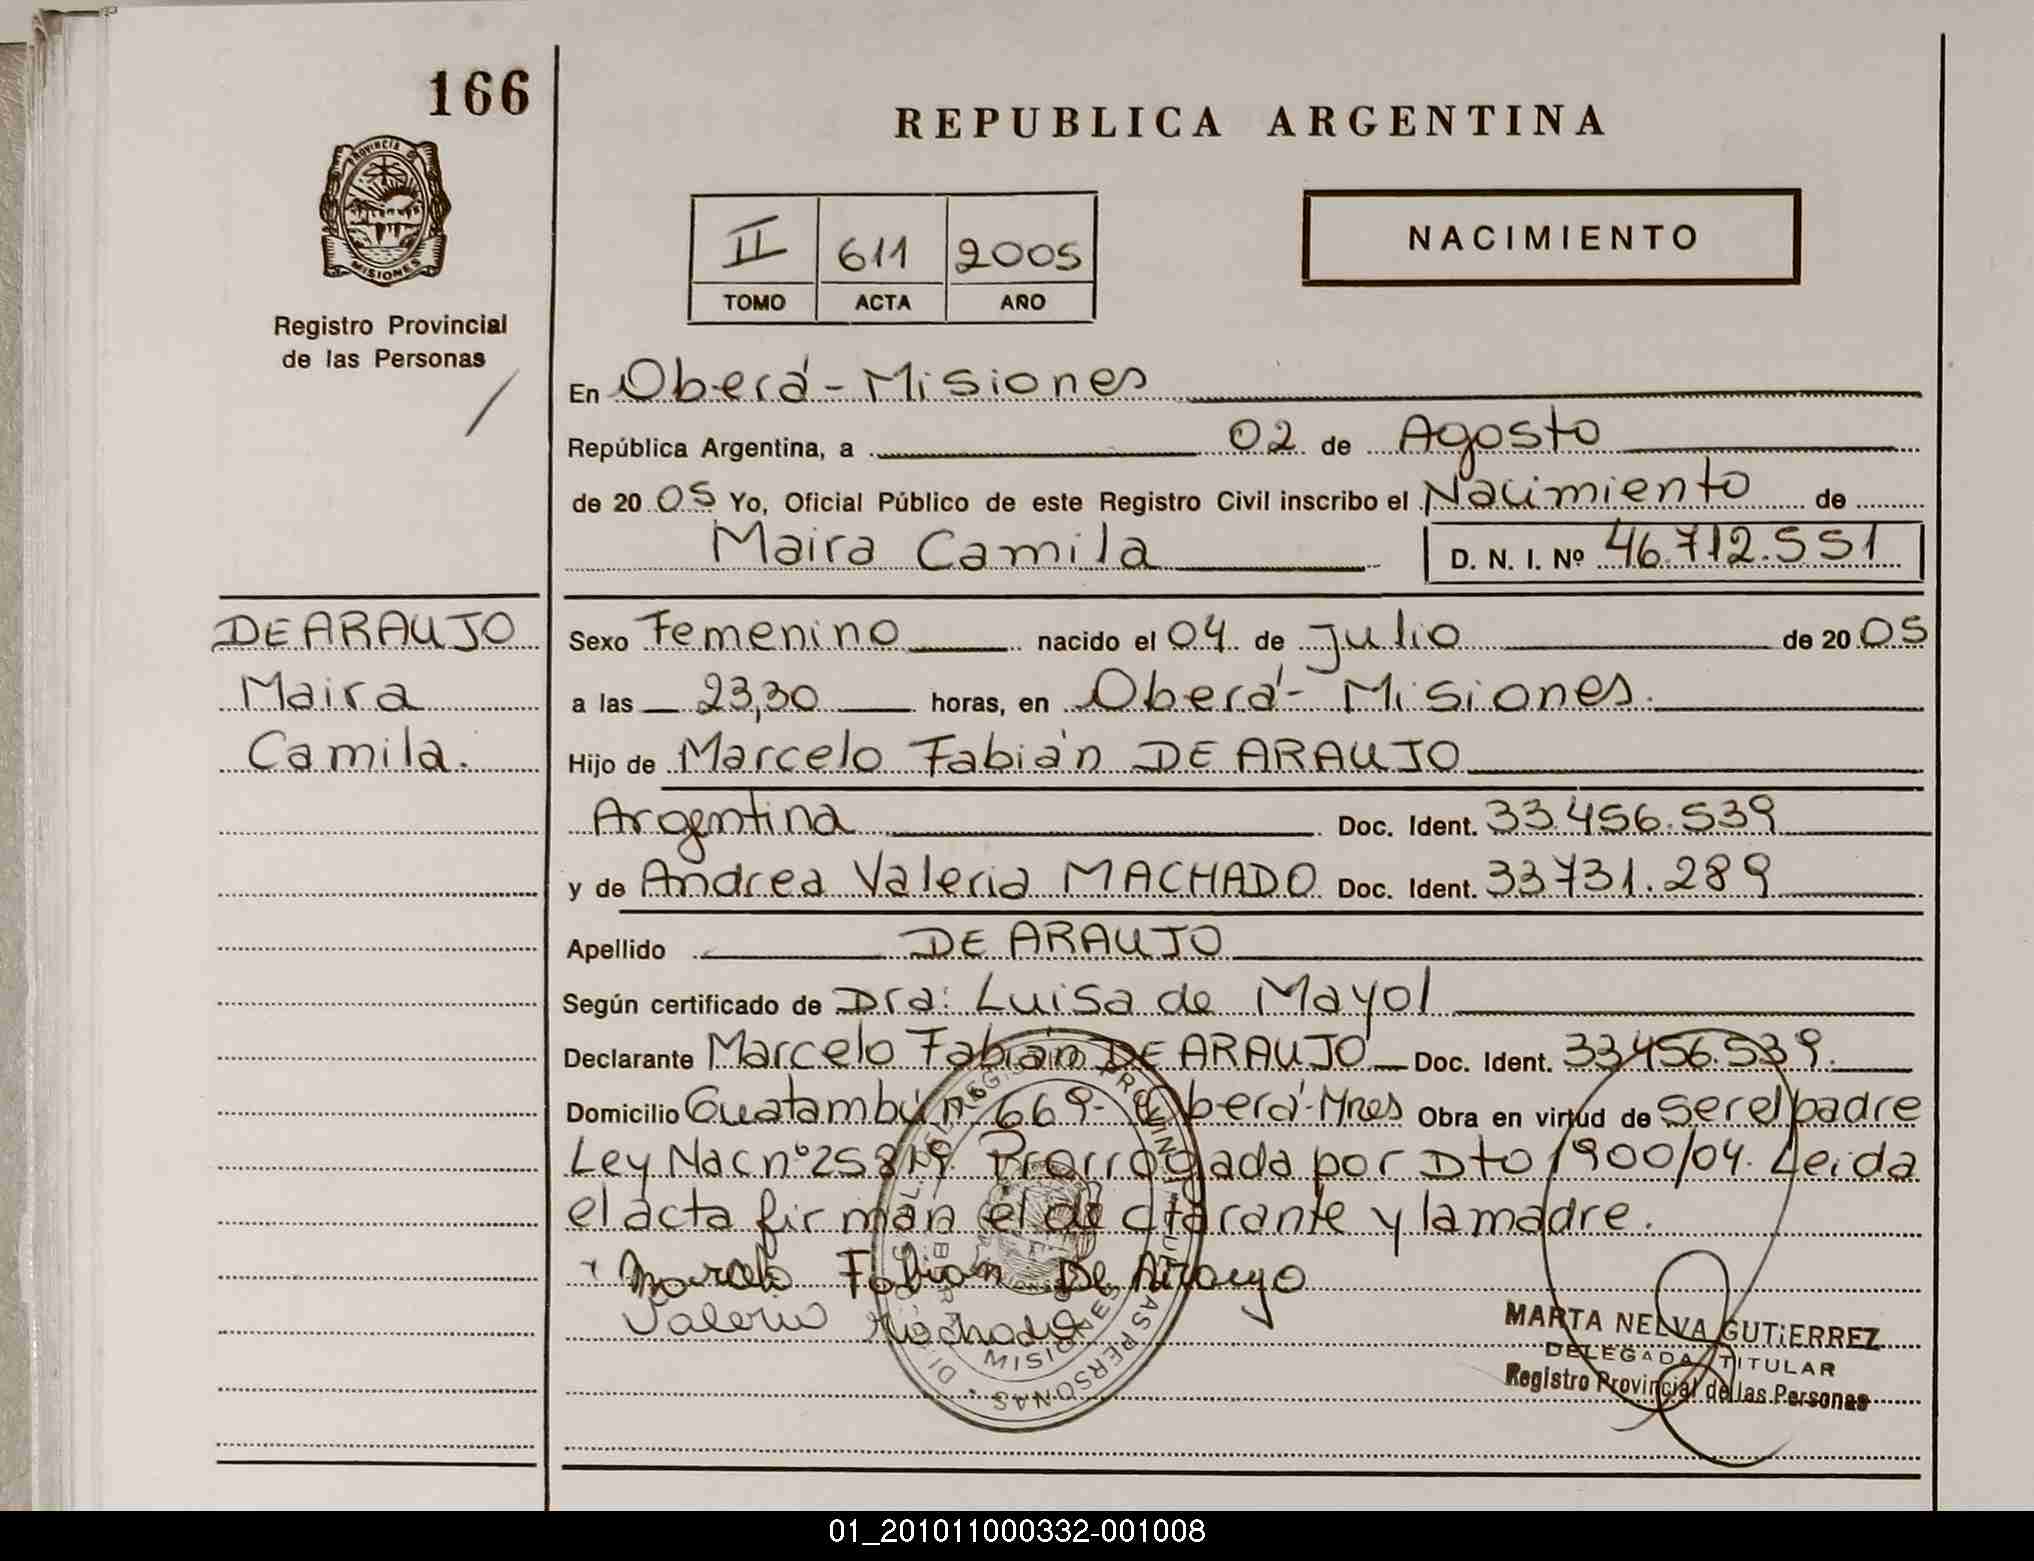 166
REPUBLICA ARGENTINA
PROVINCIA DE
MISIONES
Registro Provincial
de las Personas
II 611 2005
TOMO ACTA AÑO
NACIMIENTO
En Oberá - Misiones
República Argentina, a 02 de Agosto
de 20 05 Yo, Oficial Público de este Registro Civil inscribo el Nacimiento de
Maira Camila D. N. I. Nº 46.712.551
DE ARAUJO
Maira
Camila.
Sexo Femenino nacido el 04 de Julio de 20 05
a las 23,30 horas, en Oberá - Misiones.
Hijo de Marcelo Fabián DE ARAUJO
Argentina Doc. Ident. 33.456.539
y de Andrea Valeria MACHADO Doc. Ident. 33731.289
Apellido DE ARAUJO
Según certificado de Dra: Luisa de Mayol
Declarante Marcelo Fabián DE ARAUJO Doc. Ident. 33456.539.
Domicilio Guatambú nº 669 - Oberá - Mnes Obra en virtud de ser el padre
Ley Nac nº 25819. Prorrogada por Dto 1900/04. Leida
el acta firman el declarante y la madre.
Marcelo Fabian De Araujo
Valeria Machado
MARTA NELVA GUTIERREZ
DELEGADA TITULAR
Registro Provincial de las Personas
01_201011000332-001008